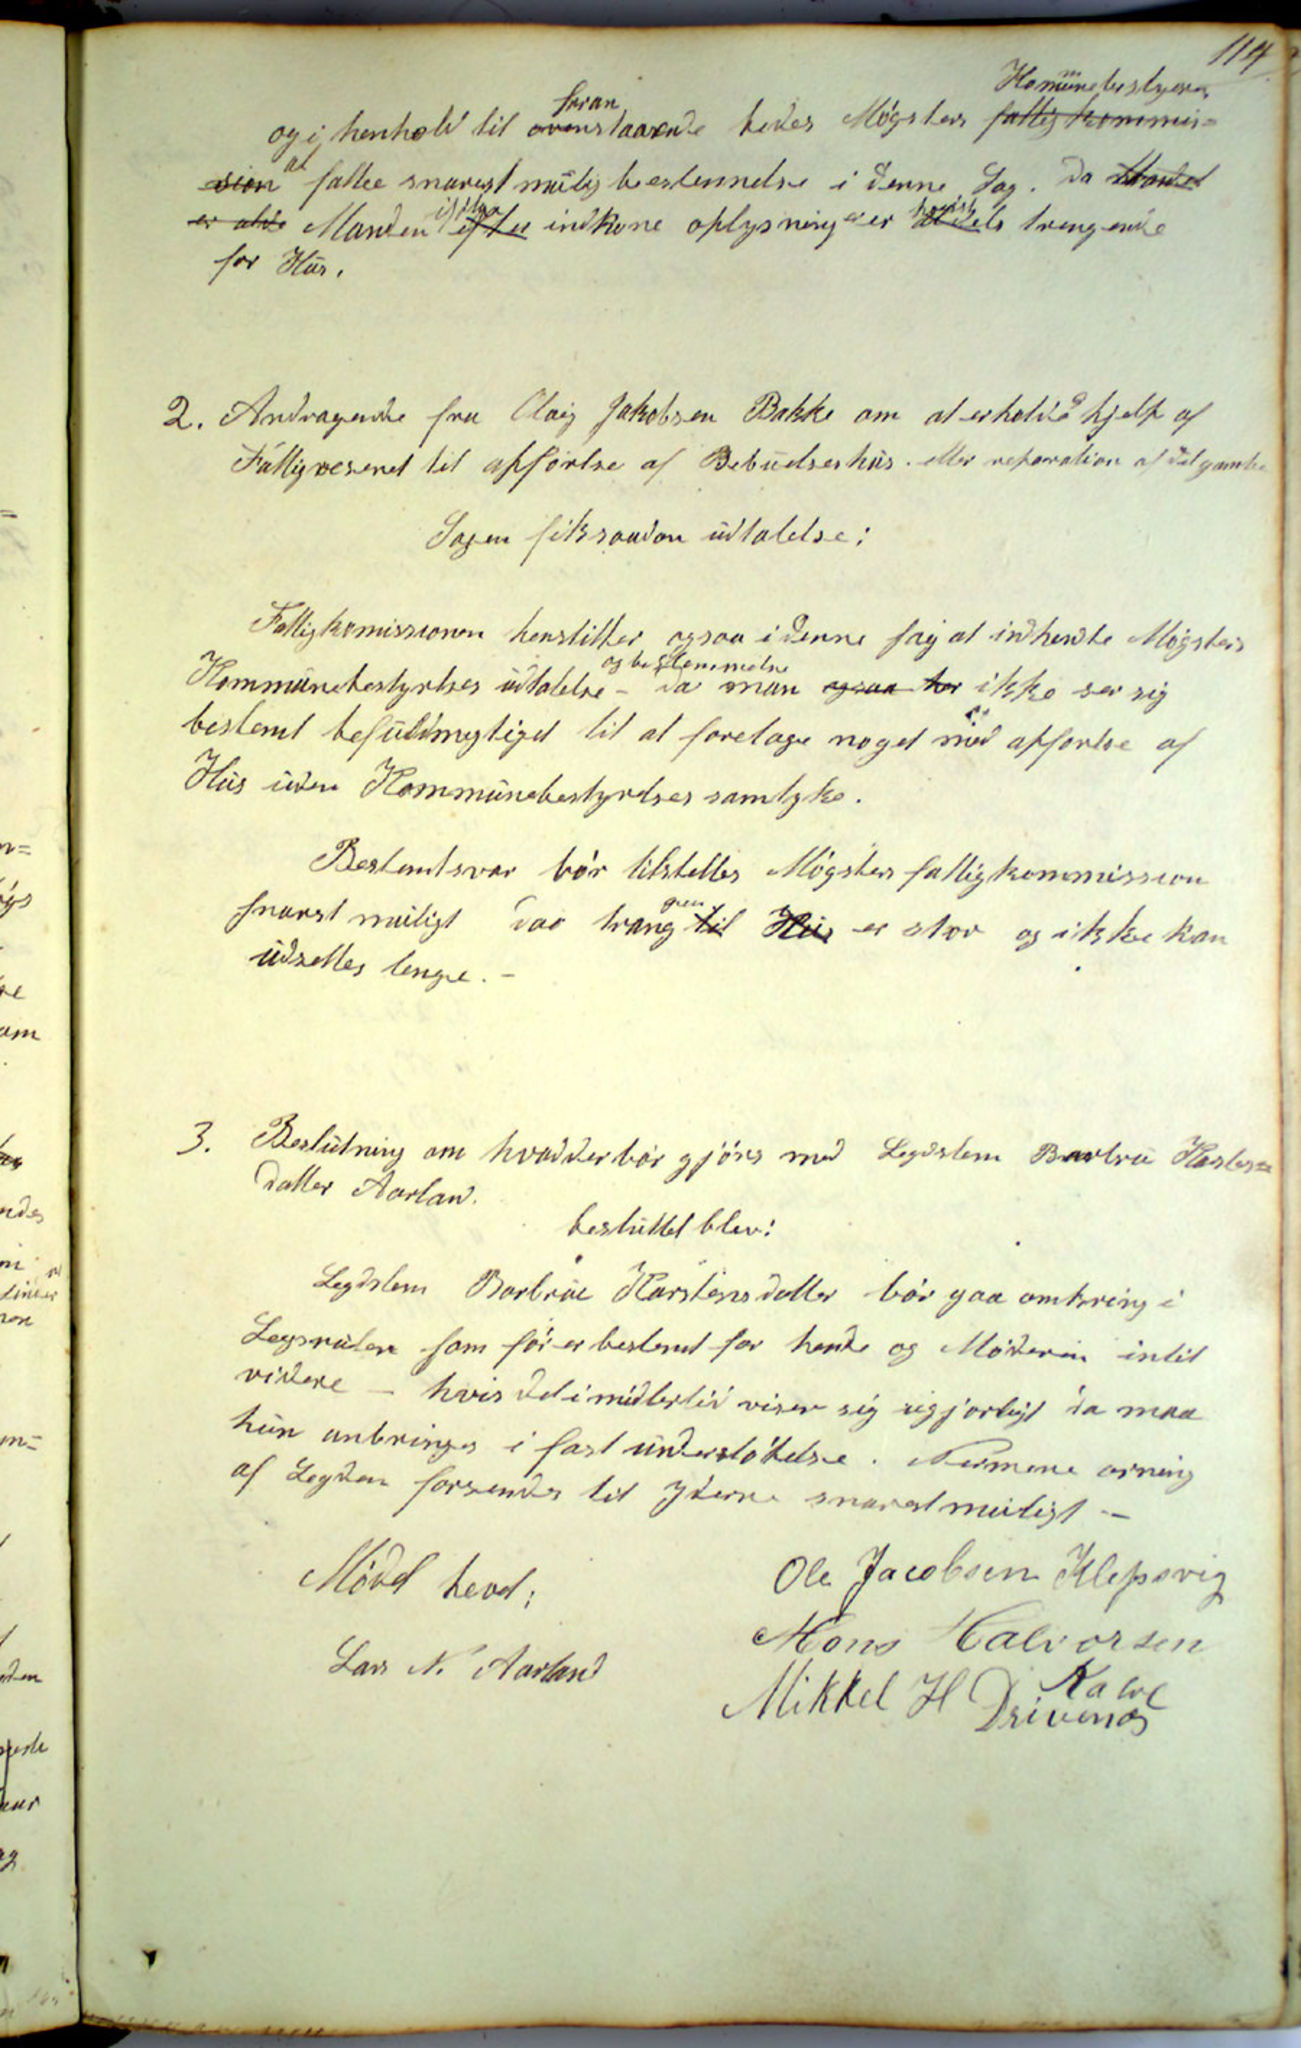 114
Homünebestyere
foran
og i henhold til ovenstaaende bedes Møgsters fattigkommis=
sion at fatte snarest mülig bestemmelse i denne Sag. da
er altid Manden ifölge efter indkomne oplysninger er höist trengende
for Hüs.
2. Andragende fra Olai Jakobsen Bakke om at erholde hjelp af
Fattigvesenet til opförelse af Bebüelseshüs. eller reparation af det gamle
Sagen fik saadan üdtalelse:
Fattigkomissionen henstiller ogsaa i denne sag at indhente Møgsters
og bestemmelse
Kommünebestyrelses üdtalelse - da man ogsaa her ikke ser sig
bestemt befüldmegtiget til at foretage noget med opförelse af
Hüs üden Kommünebestyrelses samtyke.
Bestemt svar bör tilstelles Møgsters fattigkommission
snarst müligt daa trangen til Hüs er stor og ikke kan
üdsettes lenge. -
3. Beslütning om hvad der bör gjöres med Legdslem Barbrü Karstens=
datter Aarland.
beslüttet blev:
Legdslem Barbrüe Karstensdatter bör gaa omkring i
Legsrüten som för er bestemt for hende og Möderen intil
videre - hvis det imidlertid viser sig ügjorligt da maa
hün anbringes i fast ünderstöttelse. Nermere orning
af Legden forsendes til Yderne snarest müligt -
Mödt heved:
Lars N. Aarland
Ole Jacobsen Klepsvig
Mons Halvorsen
Kalve
Mikkel H Drivenes